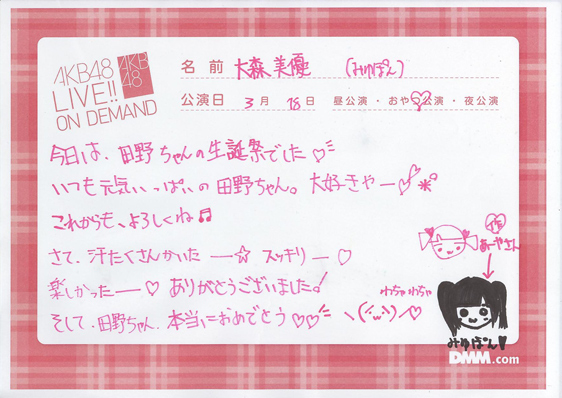 AKB48
LIVE!!
ON DEMAND
AKB
48
名前 大森美優 (みゆぽん)
公演日 3月18日 昼公演・おやつ公演・夜公演
今日は、田野ちゃんの生誕祭でした♡
いつも元気いっぱいの田野ちゃん。大好きやー
これからも、よろしくね♫
さて、汗たくさんかいたー☆ スッキリー♡
楽しかったー♡ ありがとうございました!
そして、田野ちゃん、本当におめでとう♡♡ ヽ(·ω·)ノ♡
作
あーやさん
わちゃわちゃ
みゆぽん
DMM.com